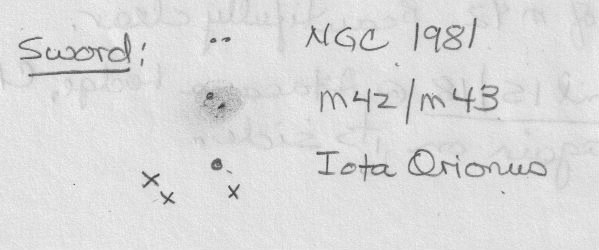 Sword: NGC 1981
m42/m43
Iota Orionus